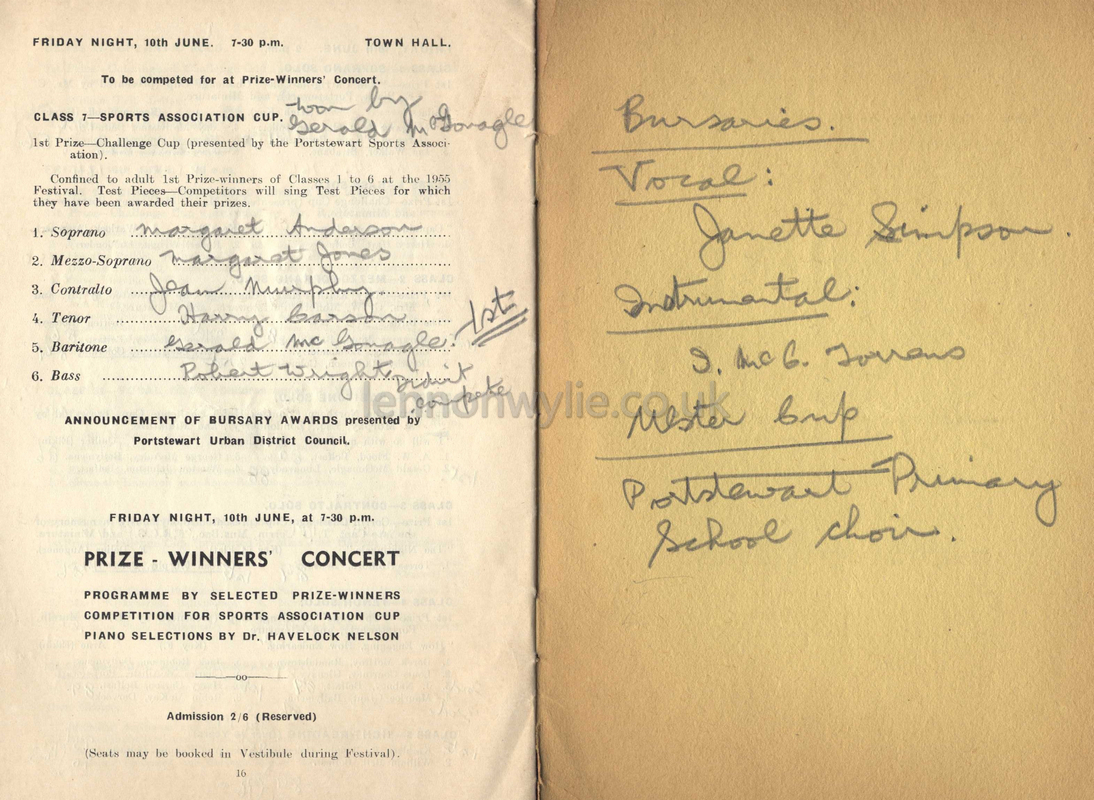 FRIDAY NIGHT, 10th JUNE. 7-30 p.m. TOWN HALL.
To be competed for at Prize-Winners' Concert.
CLASS 7—SPORTS ASSOCIATION CUP. won by
Gerald McGonagle
1st Prize—Challenge Cup (presented by the Portstewart Sports Associ-
ation).
Confined to adult 1st Prize-winners of Classes 1 to 6 at the 1955
Festival. Test Pieces—Competitors will sing Test Pieces for which
they have been awarded their prizes.
1. Soprano Margaret Anderson
2. Mezzo-Soprano Margaret Jones
3. Contralto Jean Murphy
4. Tenor Harry Carson
5. Baritone Gerald McGonagle. 1st
6. Bass Robert Wright Didn't
compete
ANNOUNCEMENT OF BURSARY AWARDS presented by
Portstewart Urban District Council.
FRIDAY NIGHT, 10th JUNE, at 7-30 p.m.
PRIZE - WINNERS' CONCERT
PROGRAMME BY SELECTED PRIZE-WINNERS
COMPETITION FOR SPORTS ASSOCIATION CUP
PIANO SELECTIONS BY Dr. HAVELOCK NELSON
—oo—
Admission 2/6 (Reserved)
(Seats may be booked in Vestibule during Festival).
16
Bursaries.
Vocal:
Janette Simpson.
Instrumental:
McC. Torrens
Ulster Cup
Portstewart Primary
School choir.
lennonwylie.co.uk